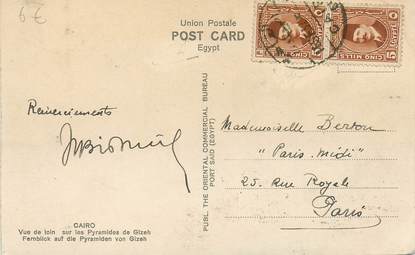 9€
Union Postale
POST CARD
Egypt
CINQ MILLS
CINQ MILLS
Remerciements
PUBL. THE ORIENTAL COMMERCIAL BUREAU
PORT SAID (EGYPT)
Mademoiselle Berton
"Paris-midi"
25. Rue Royale
Paris
CAIRO
Vue de loin sur les Pyramides de Gizeh
Fernblick auf die Pyramiden von Gizeh